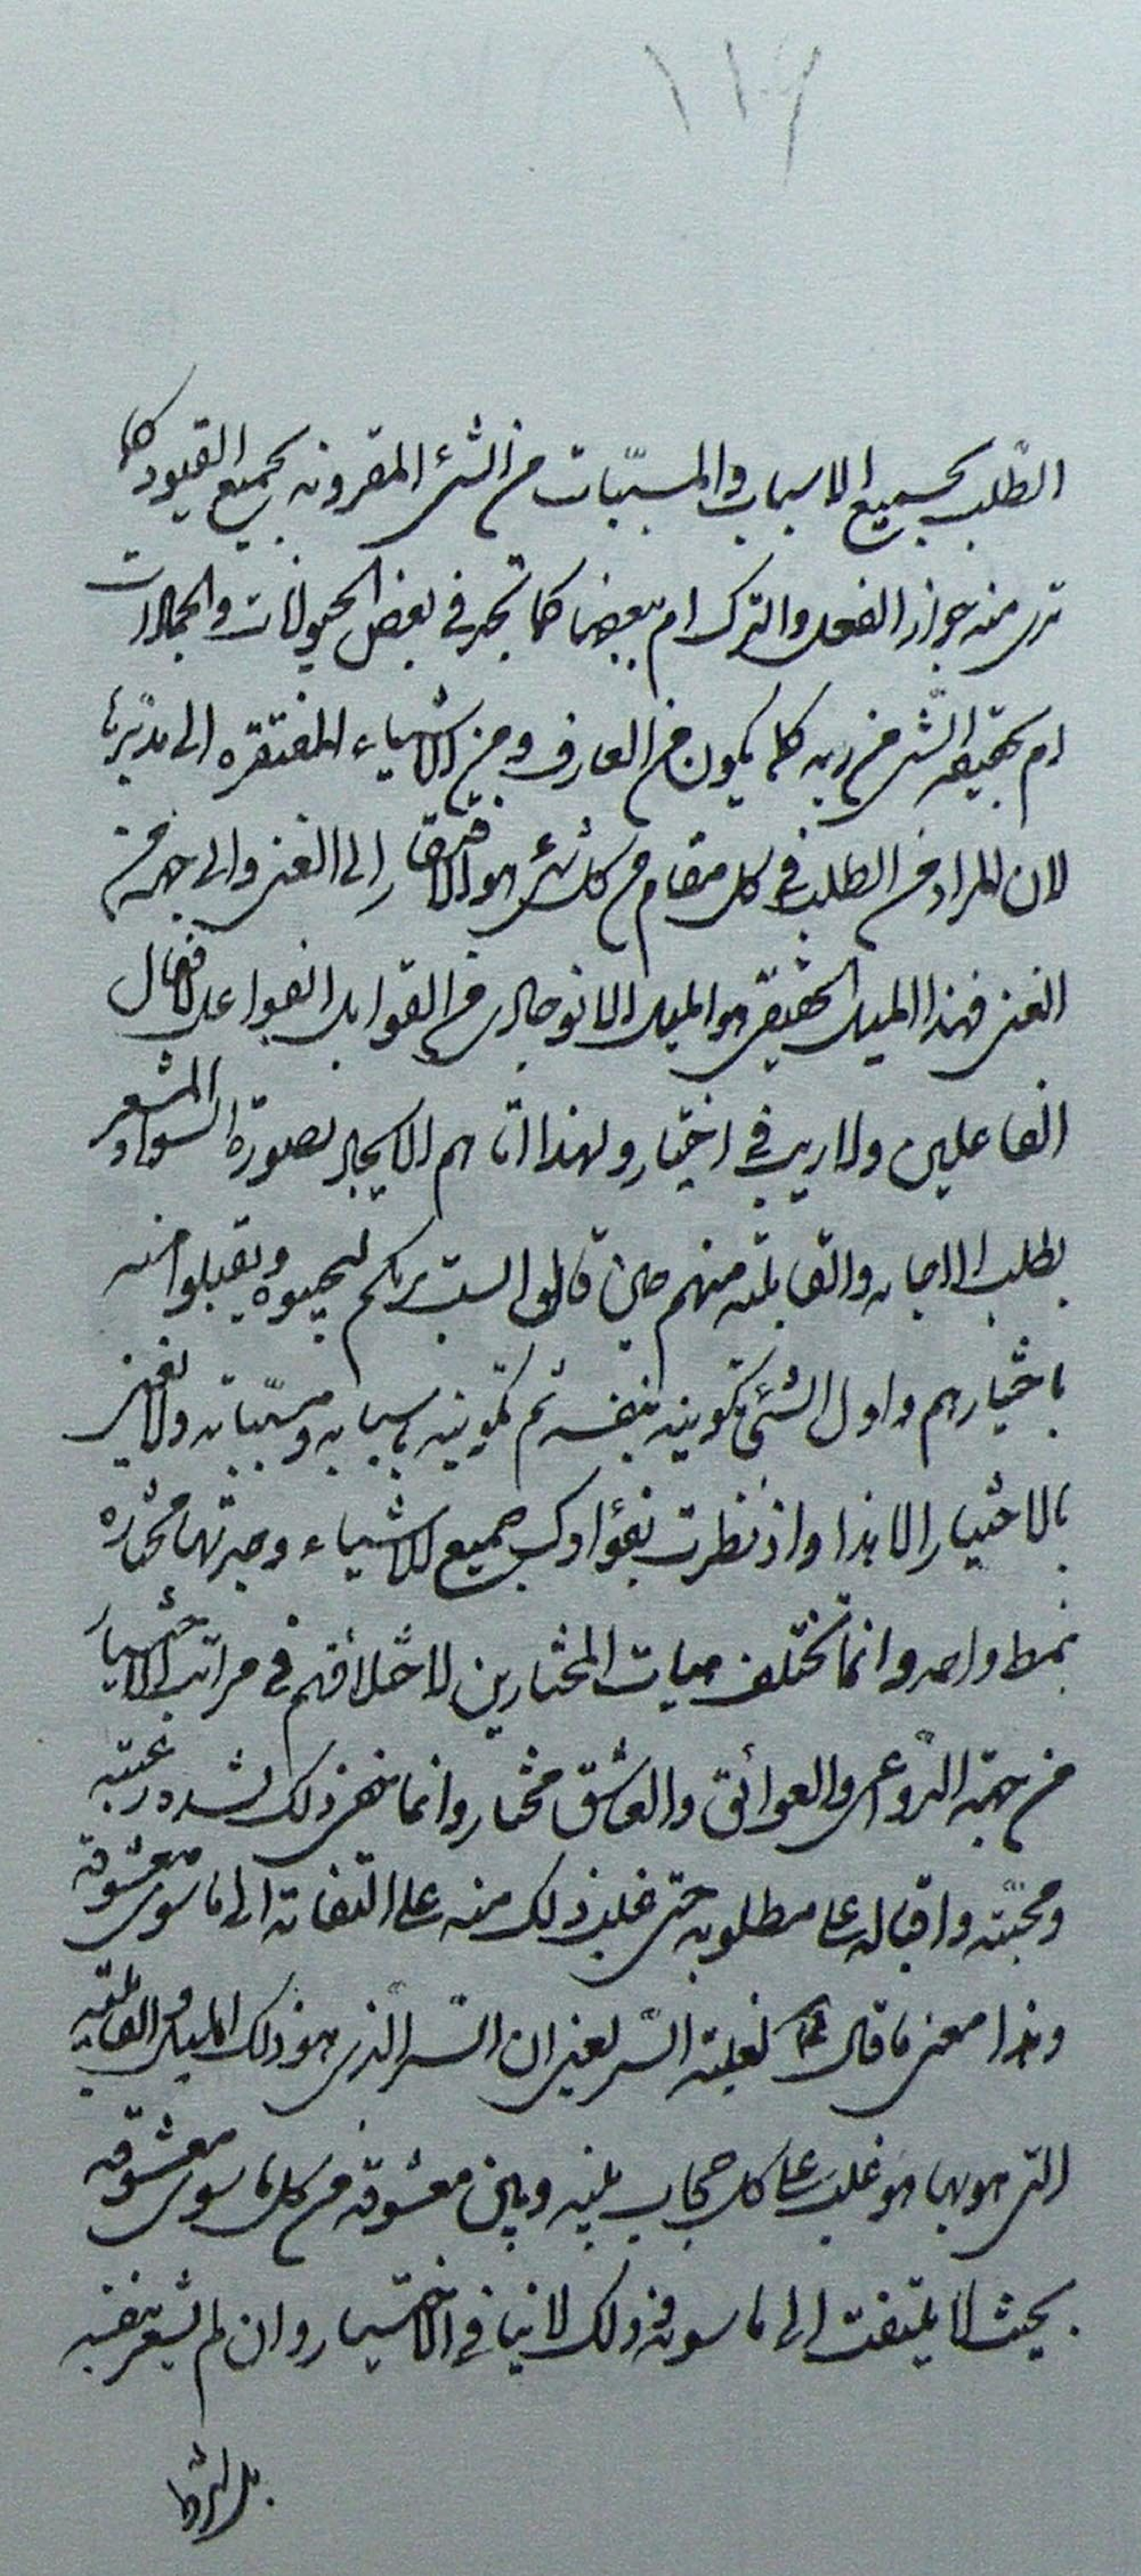 ١١٦
الطّلب بجميع الاسباب والمسبّبات من الشئ المقرونه بجميع القيود كما
ترى منه جواز الفعل والترك ام ببعضها كما تجد في بعض الحيوانات والجمادات
ام بحقيقه الشئ من ربه كلما يكون من العارف ومن الاشياء المفتقره الى مدبّرها
لان المراد من الطلب في كل مقام من كل شئ هو الافتقار الى الغنى والى جهة من
الغنى فهذا الميل الحقيقى هو الميل الانوجادى من القوابل الفواعل لافعال
الفاعلين ولا ريب فى اختيار ولهذا اتاهم الايجاد بصورة السؤال المشعر
بطلب الاجابه والقابليّه منهم حين قال الست بربكم ليجيبوه ويقبلوا منه
باختيارهم واول الشئ تكوينه بنفسه ثم تكوينه باسبابه ومسبّباته ولا نعنى
بالاختيار الا هذا واذ نظرت بفؤادك جميع الاشياء وجدتها مختاره
بنمط واحد وانما تختلف ميلات المختارين لاختلافهم فى مراتب الاختيار
من جهة الدّواعى والعوائق والعاشق مختار وانما ذلك لشده رغبته
ومحبّته واقباله على مطلوبه حتى غلب ذلك منه على التفاته الى ما سوى معشوقه
وهذا معنى ما قال لغلبة السّر يعنى ان السّر الّذى هو ذلك الميل والقابليّه
التى هو بها هو غلب على كل حجاب بينه وبين معشوقه من كل ما سوى معشوقه
بحيث لا يلتفت الى ما سوى ذلك لا ينافى الاختيار وان لم يشعر بنفسه